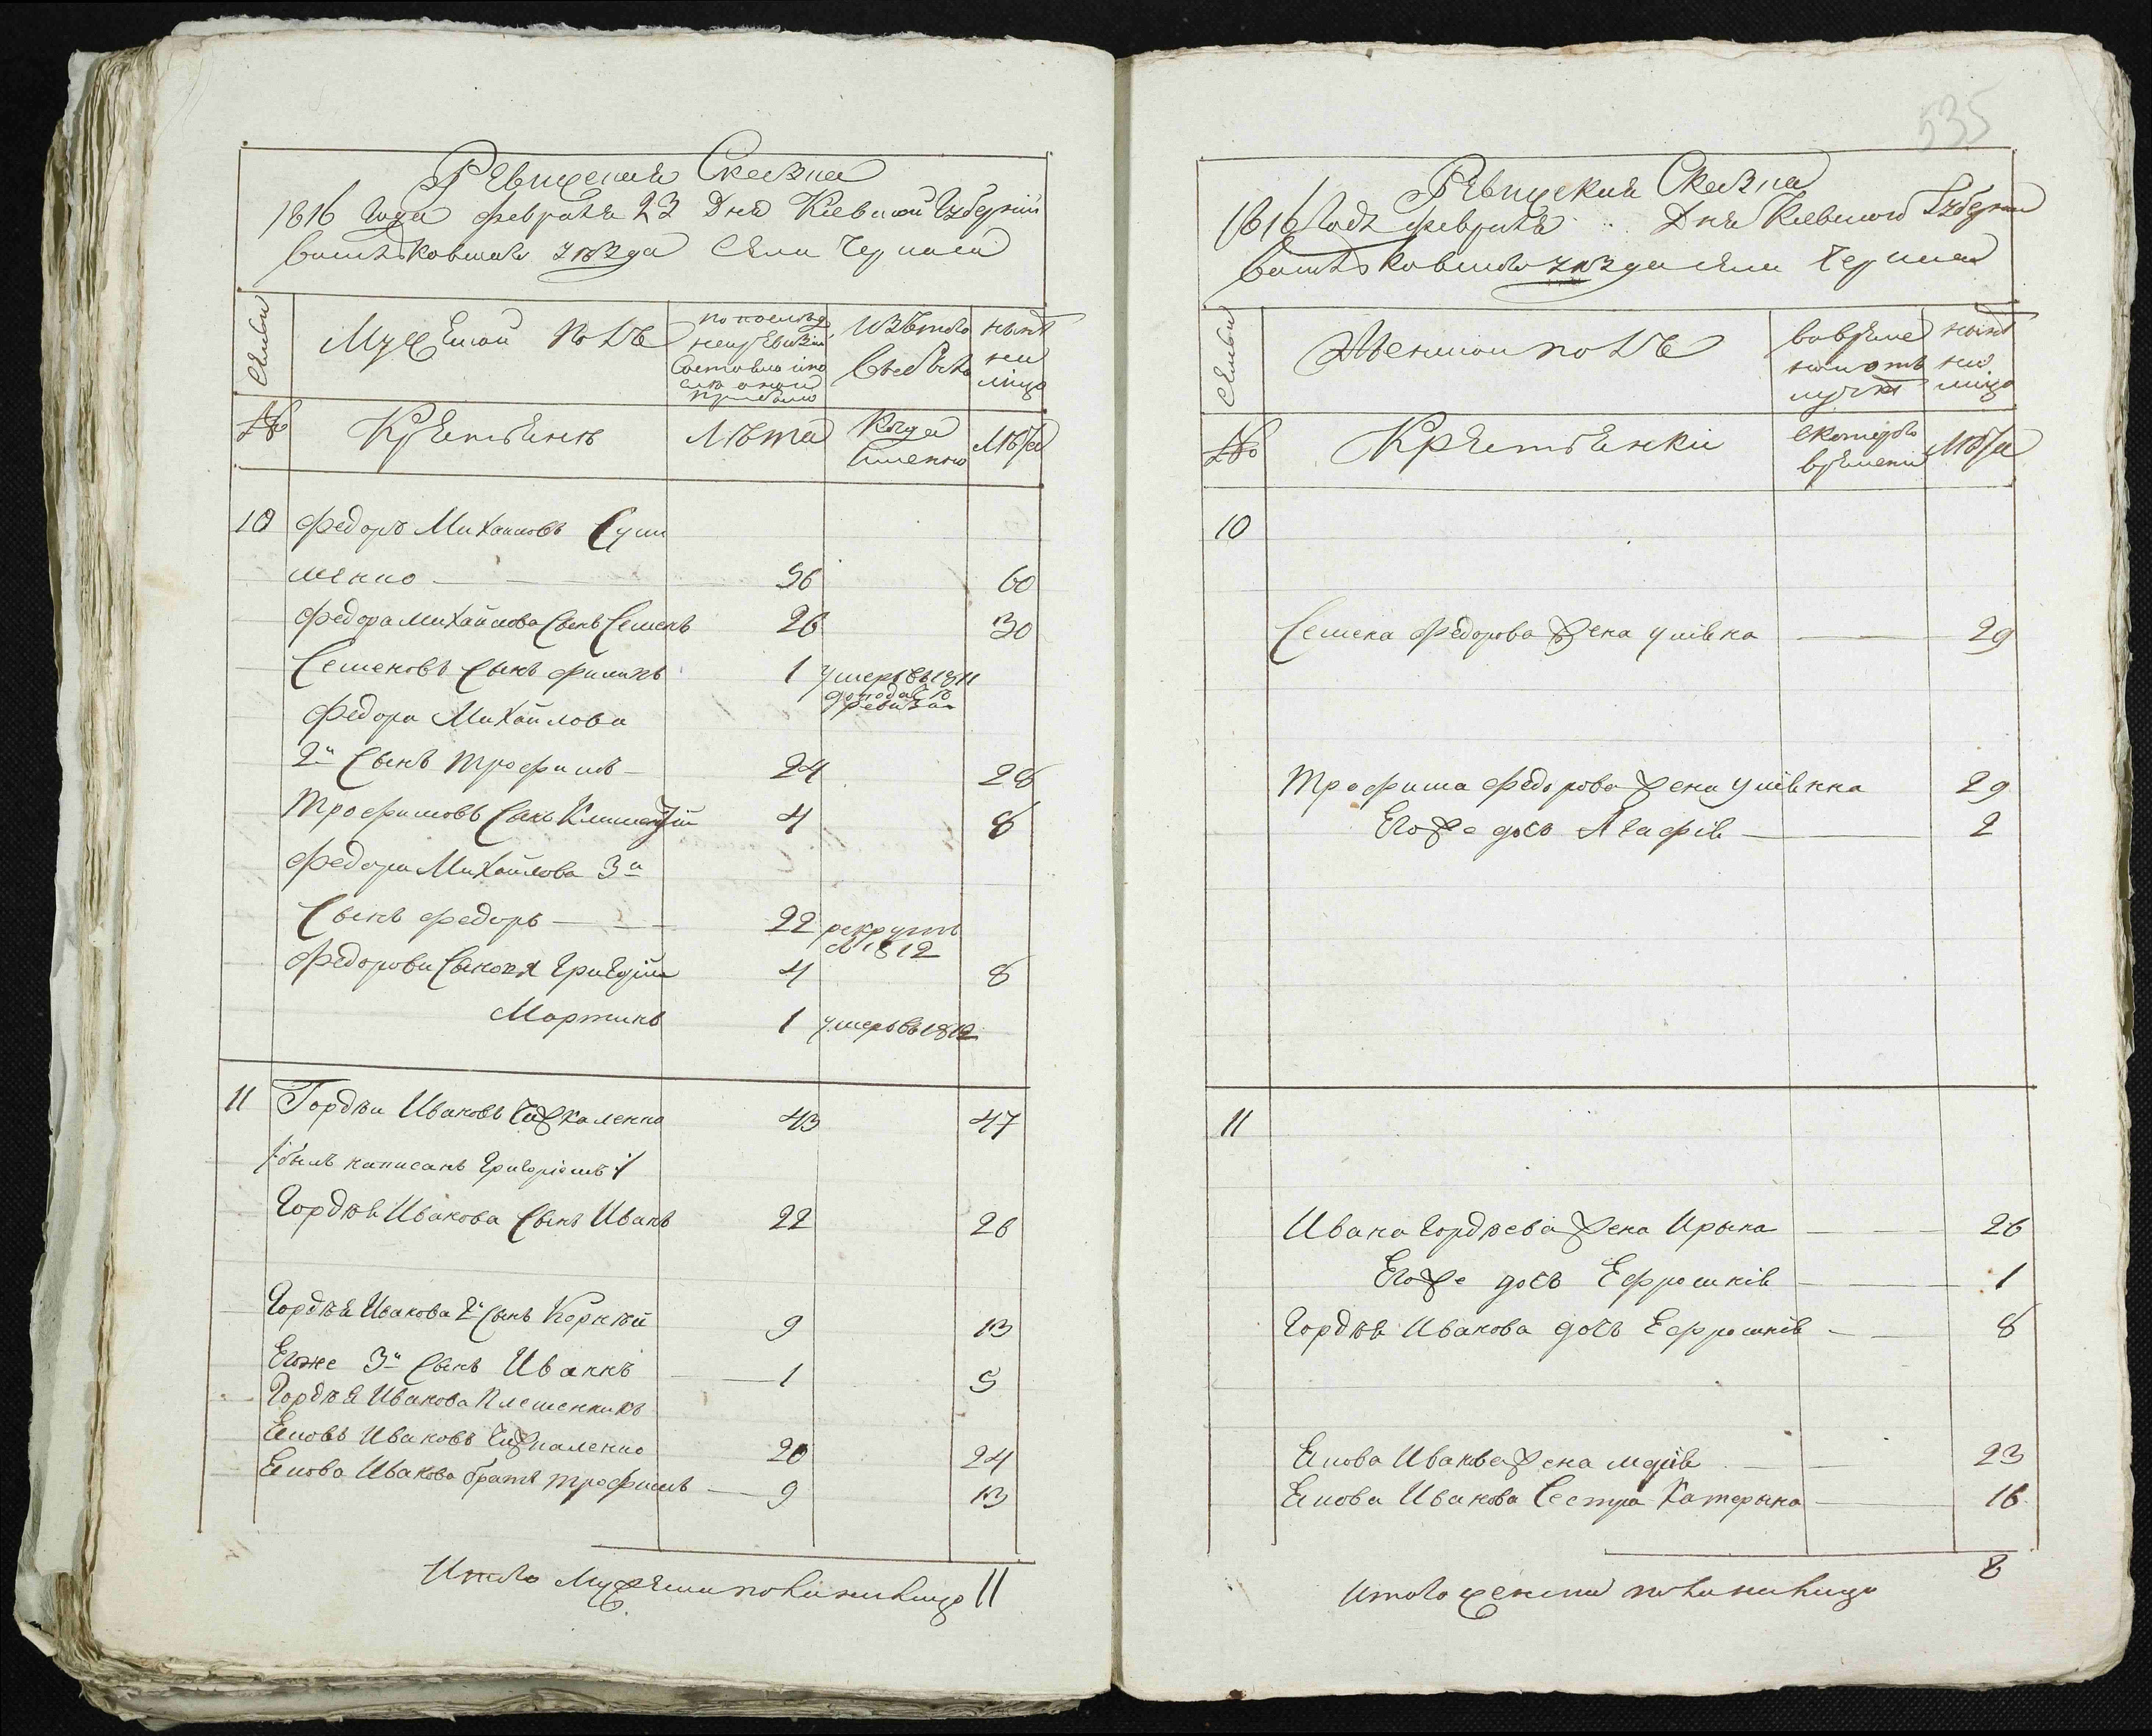 Ревижская Сказка
1816 Года февраля 23 Дня Киевской Губерніи
Василковскаго уѣзда Села Черкасъ
Семьи
Мужеской полъ
по последней ревизіи состояло и после оной прибыло
Изъ того выбыло
нынѣ на лицо
№
Крестьянъ
Лѣта
Когда именно
Лѣта
10 Федоръ Михаиловъ Суш
менко 56 60
Федора Михайлова Сынъ Семенъ 26 30
Семеновъ Сынъ Филипъ 1 умеръ въ 1811
Федора Михайлова
2й Сынъ Трофимъ 24 28
Трофимовъ Сынъ Климентій 4 8
Федора Михайлова 3й
Сынъ Федоръ 22 рекрутъ
въ 1812
Федорови Сыновя Григорій 4 8
Мартинъ 1 умеръ въ 1812
11 Гордѣи Ивановъ Чижкаленко 43 47
/:былъ написанъ Григоріемъ:/
Гордѣя Иванова Сынъ Иванъ 22 26
Гордѣя Иванова 2й Сынъ Корнѣй 9 13
Егоже 3й Сынъ Иваннъ 1 5
Гордѣя Иванова Племенникъ
Яковъ Ивановъ 20 24
Якова Иванова братъ Трофимъ 9 13
Итого Мужеска пола на лицо 11
535
Ревижская Сказка
1816 Года февраля Дня Киевской Губерніи
Василковскаго уѣзда села Черкасъ
Семьи
Женской полъ
Во временной отлучкѣ
нынѣ на лицо
№
Крестьянки
с котораго времени
Лѣта
10
Семена Федорова жена 29
Трофима Федорова жена 29
Егоже дочь Агафія 2
11
Ивана Гордѣева жена Ирына 26
Егоже дочь Ефросинія 1
Гордѣя Иванова дочь Ефросинія 8
Якова Иванова жена Марія 23
Якова Иванова Сестра Катерына 16
8
Итого женска пола на лицо